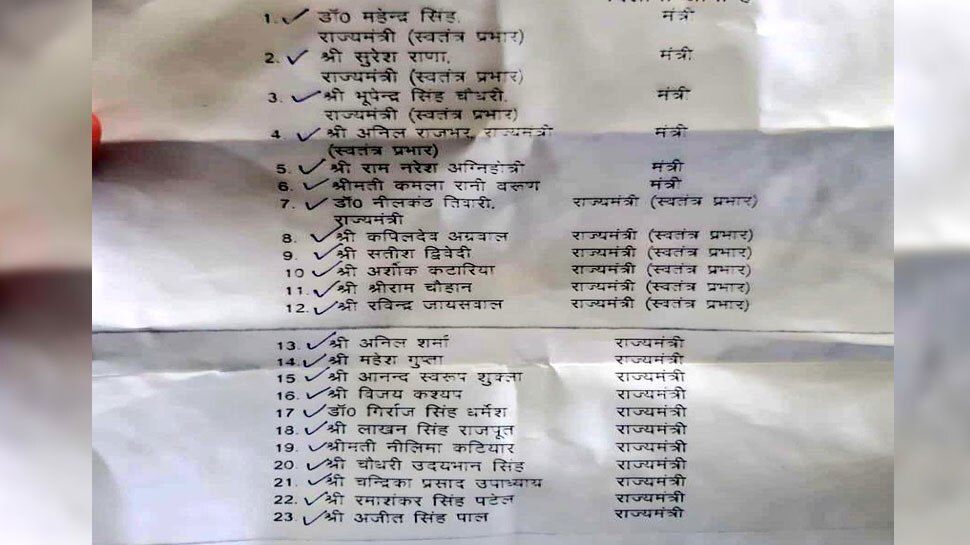 1. डॉ0 महेन्द्र सिंह, मंत्री
राज्यमंत्री (स्वतंत्र प्रभार)
2. श्री सुरेश राणा, मंत्री
राज्यमंत्री (स्वतंत्र प्रभार)
3. श्री भूपेन्द्र सिंह चौधरी, मंत्री
राज्यमंत्री (स्वतंत्र प्रभार)
4. श्री अनिल राजभर, राज्यमंत्री मंत्री
(स्वतंत्र प्रभार)
5. श्री राम नरेश अग्निहोत्री मंत्री
6. श्रीमती कमला रानी वरूण मंत्री
7. डॉ0 नीलकंठ तिवारी, राज्यमंत्री (स्वतंत्र प्रभार)
राज्यमंत्री
8. श्री कपिलदेव अग्रवाल राज्यमंत्री (स्वतंत्र प्रभार)
9. श्री सतीश द्विवेदी राज्यमंत्री (स्वतंत्र प्रभार)
10 श्री अशोक कटारिया राज्यमंत्री (स्वतंत्र प्रभार)
11. श्री श्रीराम चौहान राज्यमंत्री (स्वतंत्र प्रभार)
12. श्री रविन्द्र जायसवाल राज्यमंत्री (स्वतंत्र प्रभार)
13. श्री अनिल शर्मा राज्यमंत्री
14. श्री महेश गुप्ता राज्यमंत्री
15 श्री आनन्द स्वरूप शुक्ला राज्यमंत्री
16. श्री विजय कश्यप राज्यमंत्री
17 डॉ0 गिर्राज सिंह धर्मेश राज्यमंत्री
18. श्री लाखन सिंह राजपूत राज्यमंत्री
19. श्रीमती नीलिमा कटियार राज्यमंत्री
20. श्री चौधरी उदयभान सिंह राज्यमंत्री
21. श्री चन्द्रिका प्रसाद उपाध्याय राज्यमंत्री
22. श्री रमाशंकर सिंह पटेल राज्यमंत्री
23. श्री अजीत सिंह पाल राज्यमंत्री